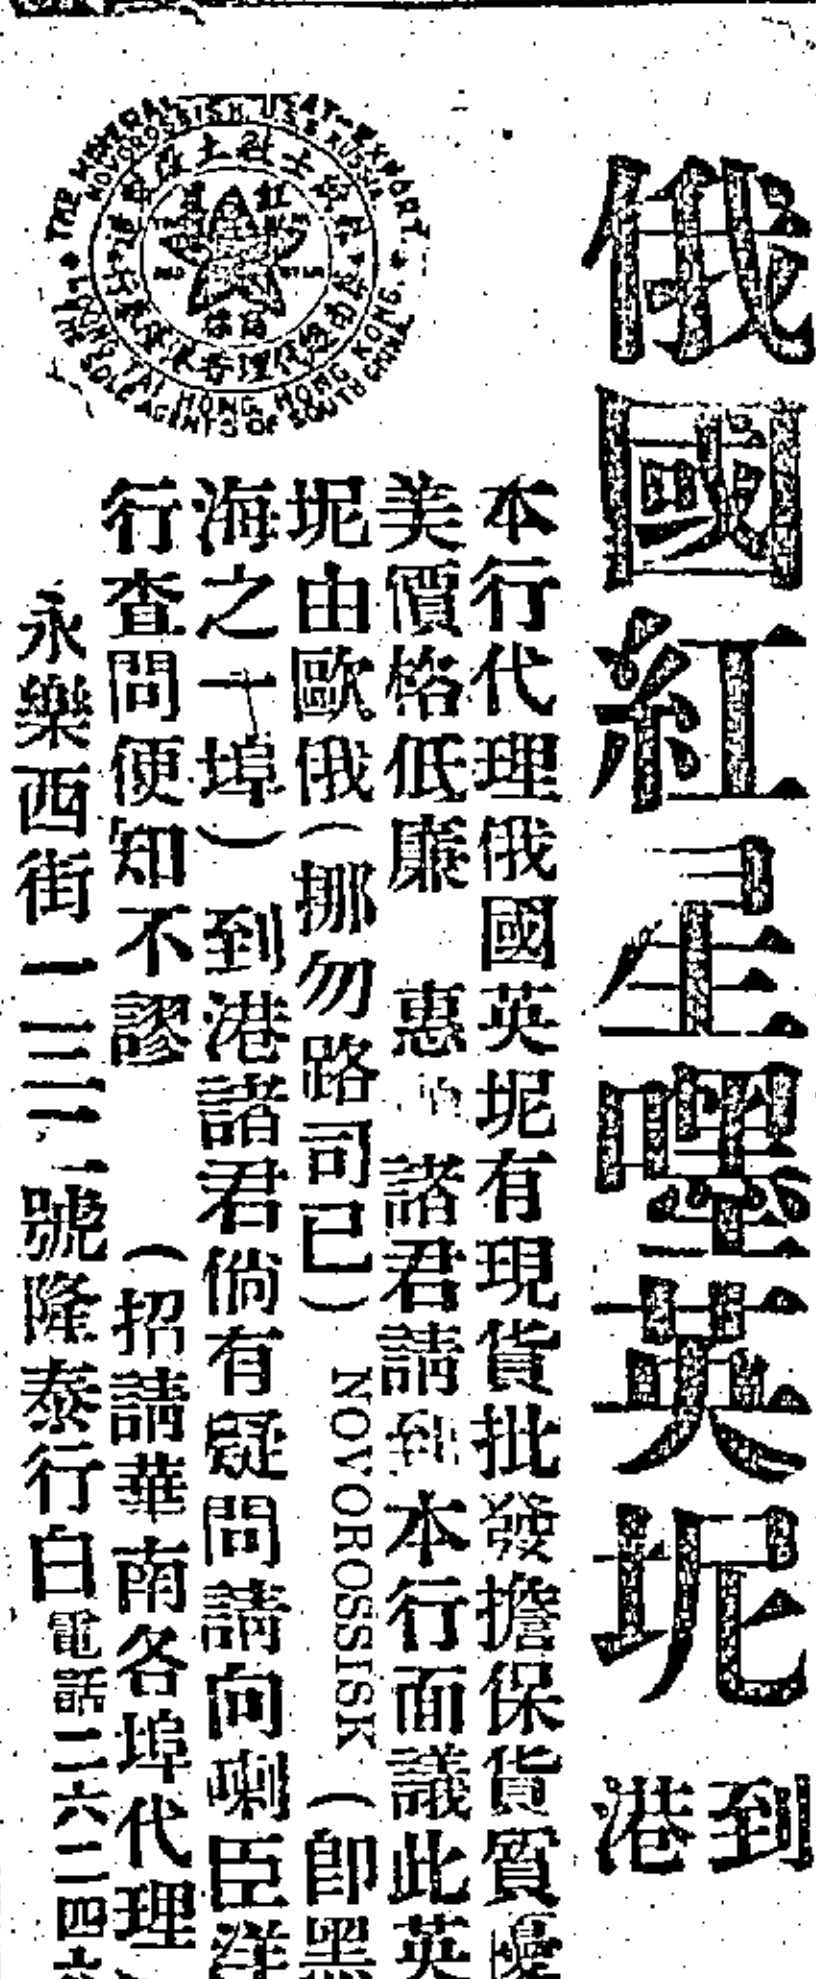 俄國紅星嘜英坭
到港
本行代理俄國英坭有現貨批發擔保貨質優
美價格低廉 惠 諸君請到本行面議此英
坭由歐俄(挪勿路司已) NOVOROSSISK (卽黑
海之一埠)到港諸君倘有疑問請向喇臣洋
行查問便知不謬 (招請華南各埠代理
永樂西街一二三二號隆泰行白 電話二六二四六
NOVOROSSISK, U.S.S. RUSSIA
TUNG TAI HONG, HONG KONG.
THE SOLE AGENTS OF SOUTH CHINA
紅星